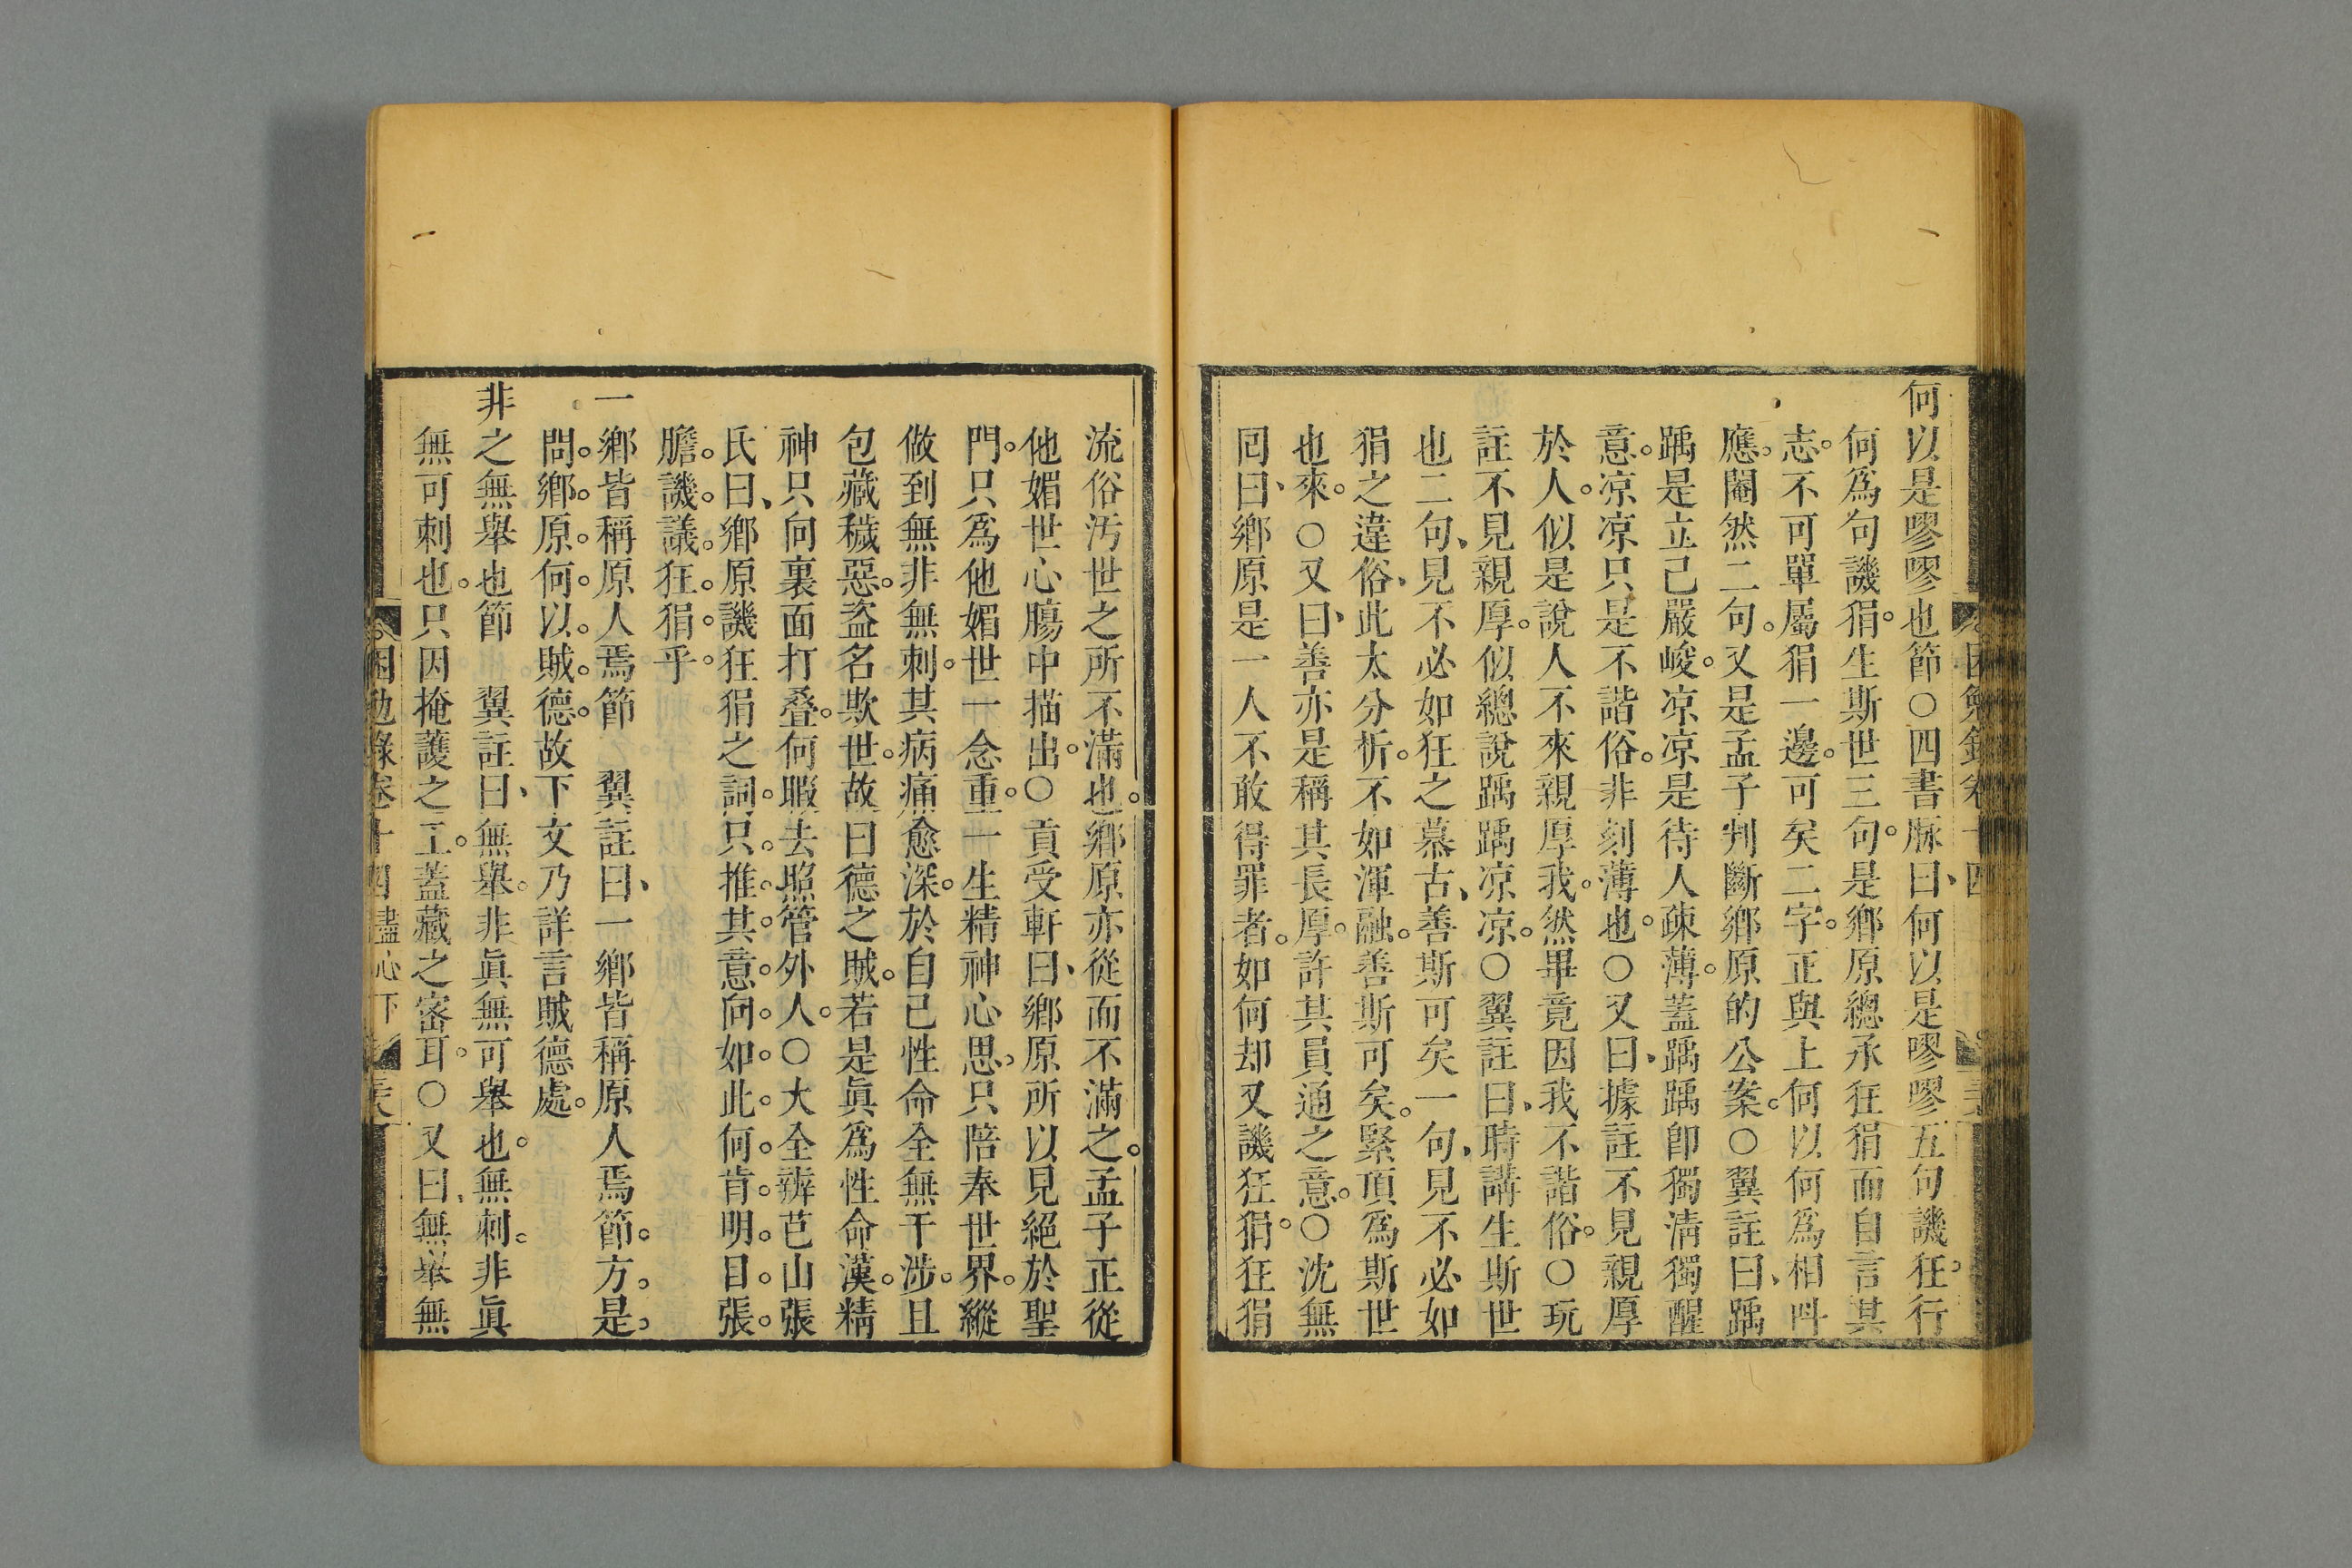 何以是嘐嘐也節○四書脈曰、何以是嘐嘐五句譏狂。行
何爲句譏狷。生斯世三句。是鄉原總承狂狷而自言其
志。不可單屬狷一邊。可矣二字。正與上何以何爲相呌
應。閹然二句。又是孟子判斷鄉原的公案。○翼註曰、踽
踽是立己嚴峻。凉凉是待人疎薄。蓋踽踽卽獨淸獨醒
意。凉凉只是不諧俗。非刻薄也。○又曰、據註不見親厚
於人。似是說人不來親厚我。然畢竟因我不諧俗。○玩
註不見親厚。似總說踽踽凉凉。○翼註曰、時講生斯世
也二句、見不必如狂之慕古、善斯可矣一句、見不必如
狷之違俗、此太分析。不如渾融。善斯可矣。緊頂爲斯世
也來。○又曰、善亦是稱其長厚。許其員通之意。○沈無
囘曰、鄉原是一人不敢得罪者。如何却又譏狂狷。狂狷
流俗汚世之所不滿也。鄉原亦從而不滿之。孟子正從
他媚世心膓中描出。○貢受軒曰、鄉原所以見絕於聖
門。只爲他媚世一念重。一生精神心思。只陪奉世界。縱
做到無非無刺。其病痛愈深。於自己性命全無干涉。且
包藏穢惡。盜名欺世。故曰德之賊。若是眞爲性命漢。精
神只向裏面打疊。何暇去照管外人。○大全辨芑山張
氏曰、鄉原譏狂狷之詞。只推其意向如此。何肯明目張
膽。譏議狂狷乎。
一鄉皆稱原人焉節　翼註曰、一鄉皆稱原人焉節。方是
問鄉原何以賊德。故下文乃詳言賊德處。
非之無舉也節　翼註曰、無舉。非眞無可舉也。無刺。非眞
無可刺也。只因掩護之工。蓋藏之密耳。○又曰、無舉無
困勉錄卷十四 盡心下